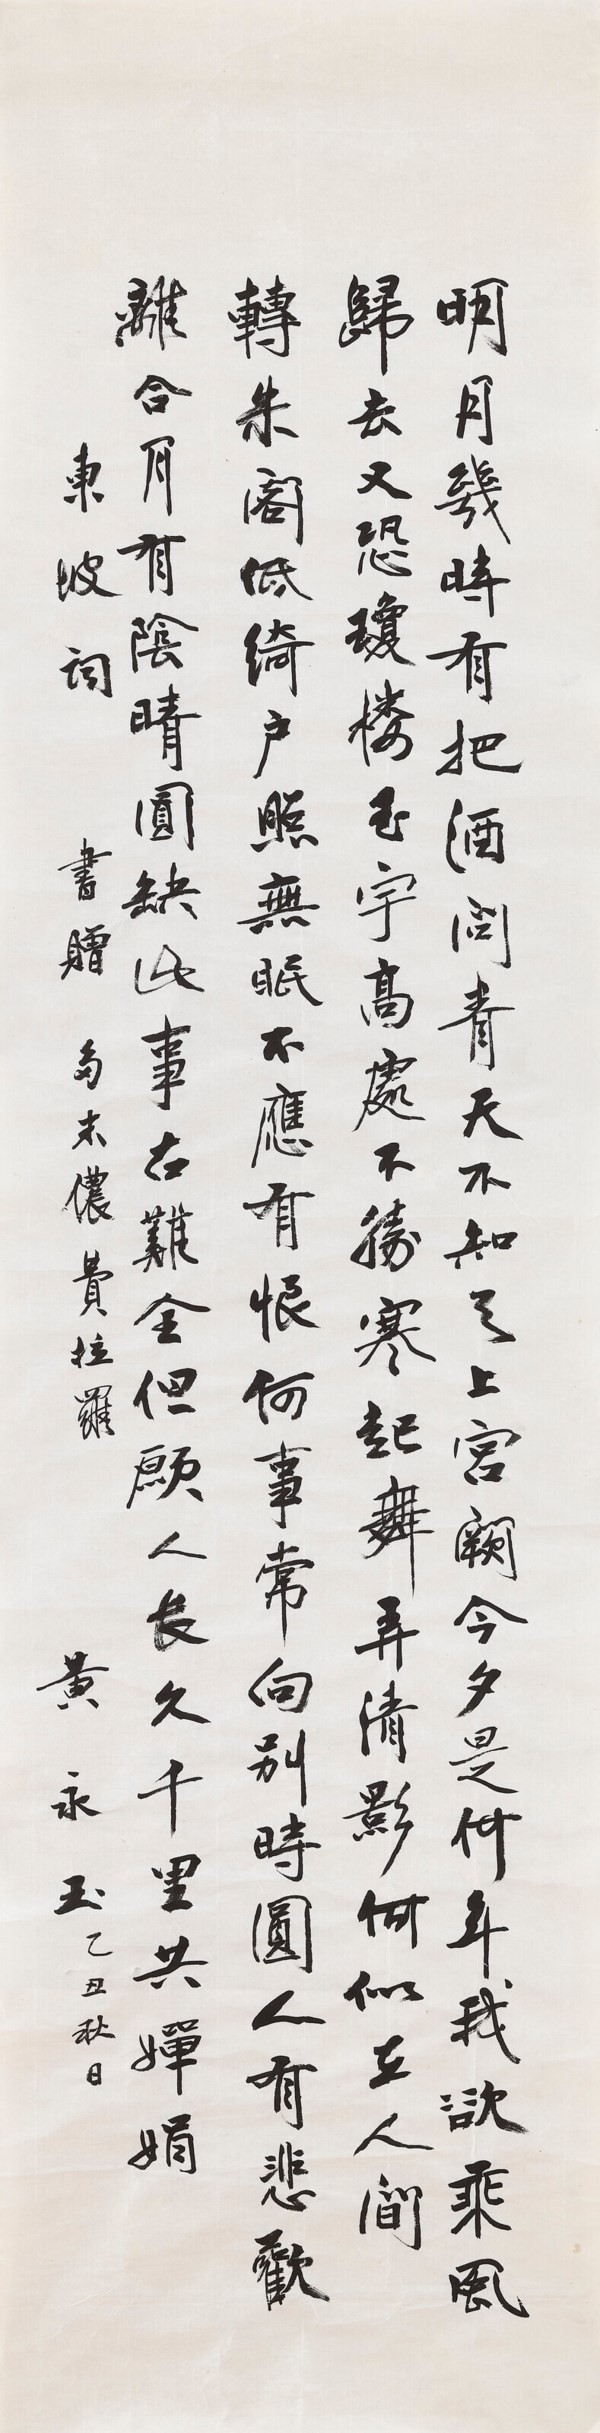 明月幾時有把酒問青天不知天上宮闕今夕是何年我欲乘風
歸去又恐瓊樓玉宇高處不勝寒起舞弄清影何似在人間
轉朱閣低綺户照無眠不應有恨何事常向別時圓人有悲歡
離合月有陰晴圓缺此事古難全但願人長久千里共嬋娟
東坡詞 書贈 多米儂費拉羅 黃永玉 乙丑秋日